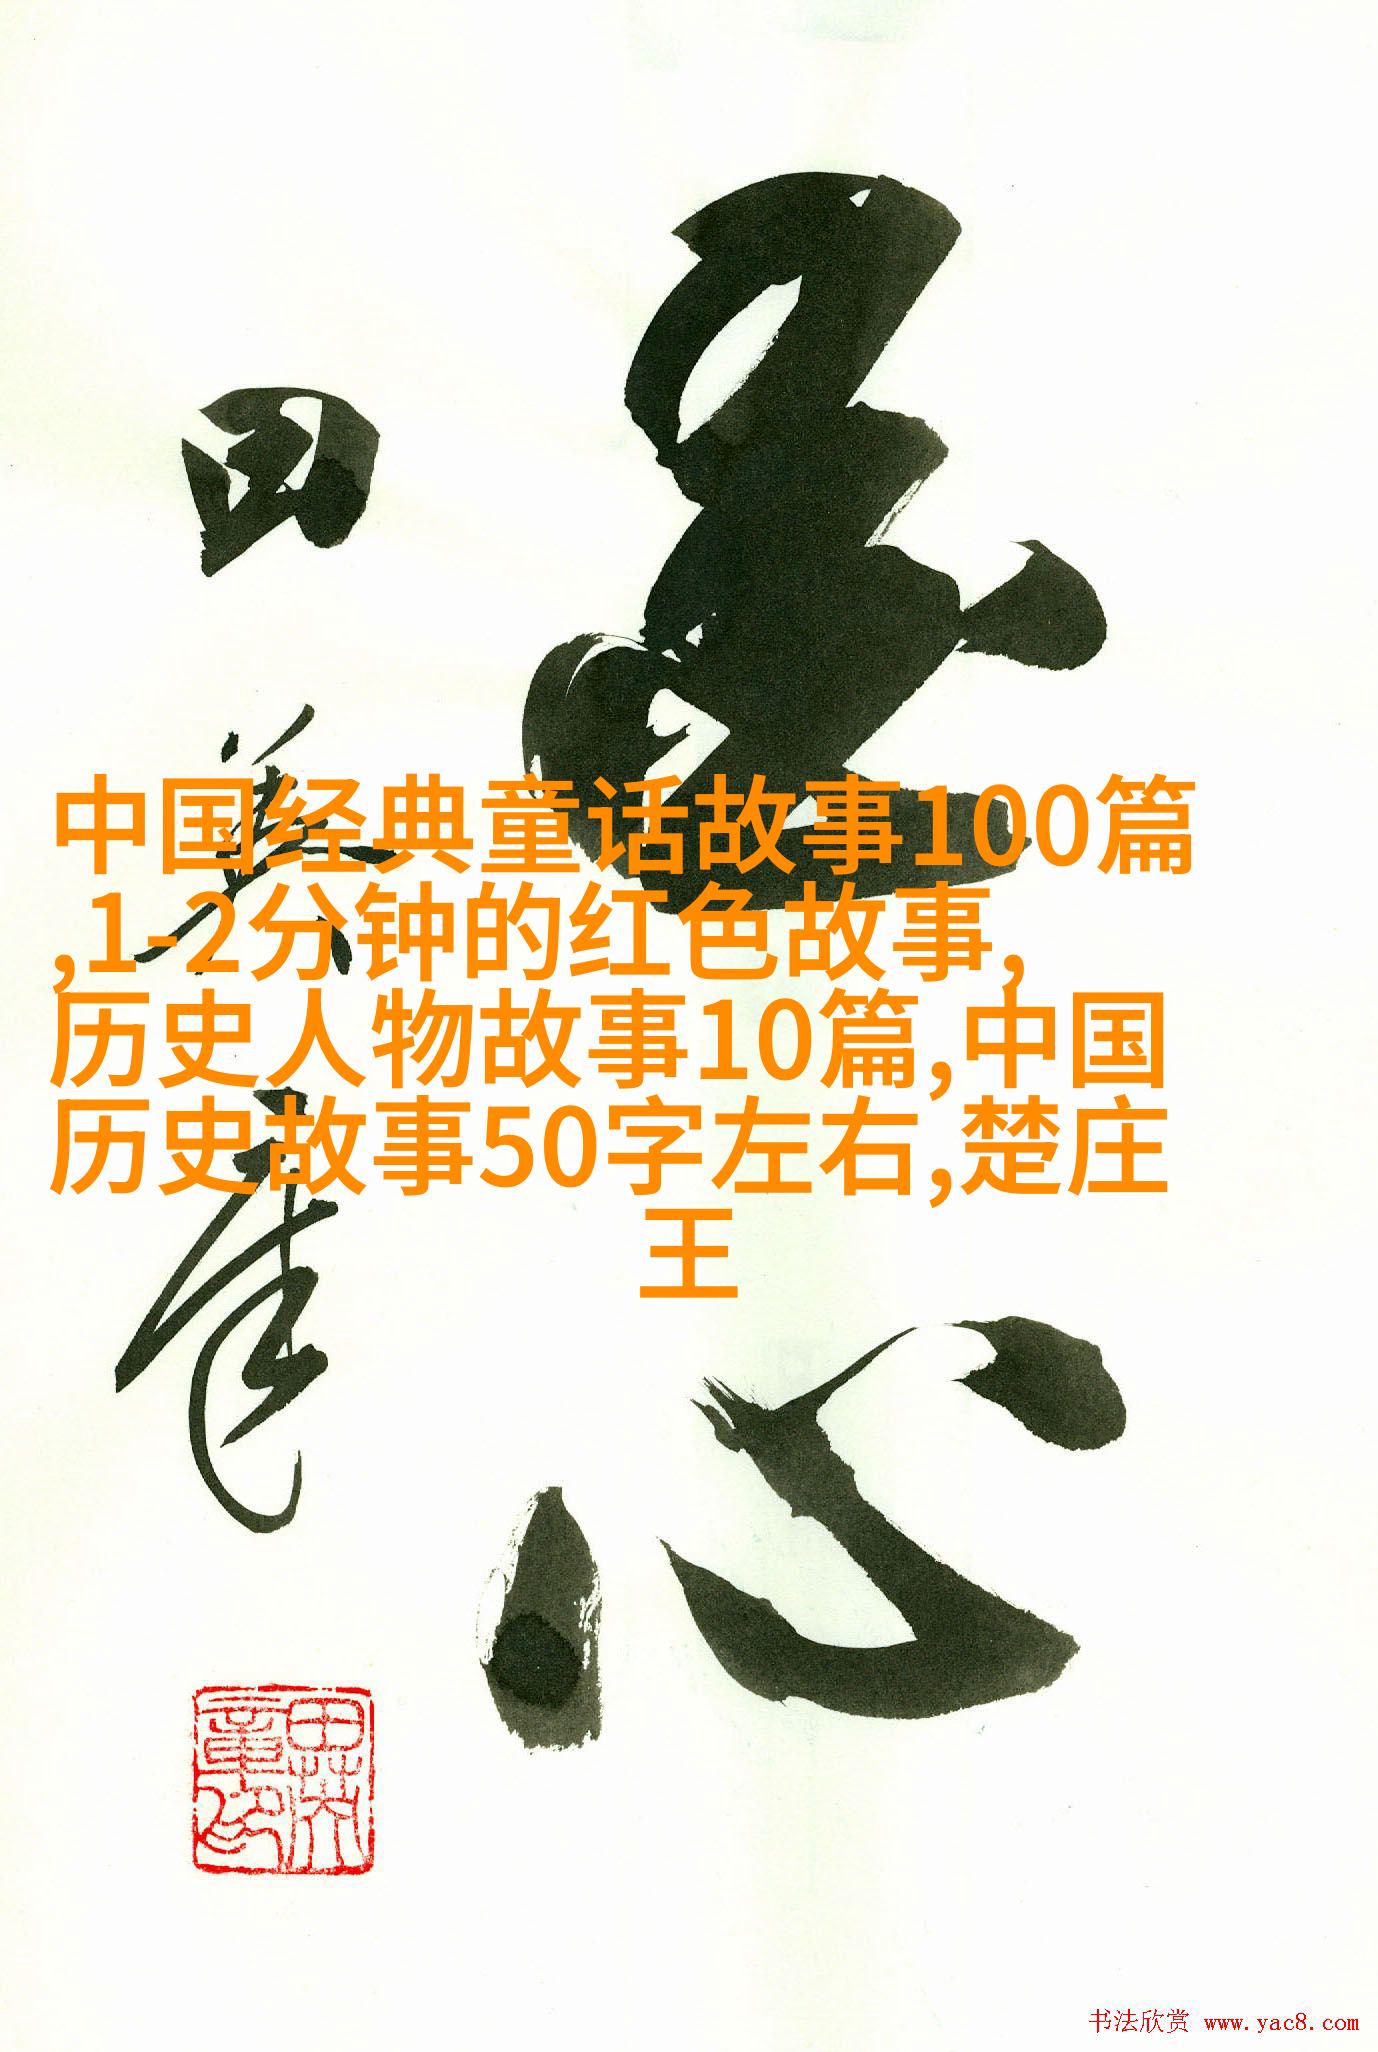 中国经典童话故事100篇
,1-2分钟的红色故事,
历史人物故事10篇,中国
历史故事50字左右,楚庄
王
田
心
书法欣赏 www.yac8.com